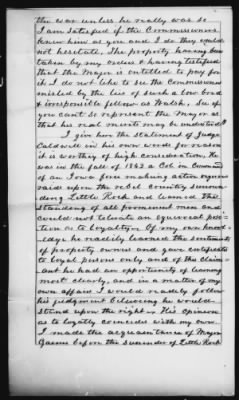 the war unless he really was so
I am satisfied if the Commissioners
knew him as you and I do they would
not hesitate. The property having been
taken by my orders & having testified
that the Mayor is entitled to pay for
it I do not like to see the Commissioners
misled by the lies of such a low bred
& irresponsible fellow as Walsh. See if
you can't so represent the Mayor as
that his real merits may be understood"
I give here the statement of Judge
Caldwell in his own words for reason
it is worthy of high consideration. He
was in the fall of 1863 a Col in Command
of an Iowa force making action
raids upon the rebel country surrounding
Little Rock and learned the
standing of all prominent men and
could not tolerate an equivocal position
as to loyalty. Of my own knowledge
he readily learned the sentiments
of property owners and gave certificates
to loyal persons only and of this claimant
he had an opportunity of learning
most clearly, and in a matter of my
own affair I would readily follow
his judgment believing he would
stand upon the right. His opinion
as to loyalty coincides with my own.
I made the acquaintance of Mayor
before the surrender of Little Rock